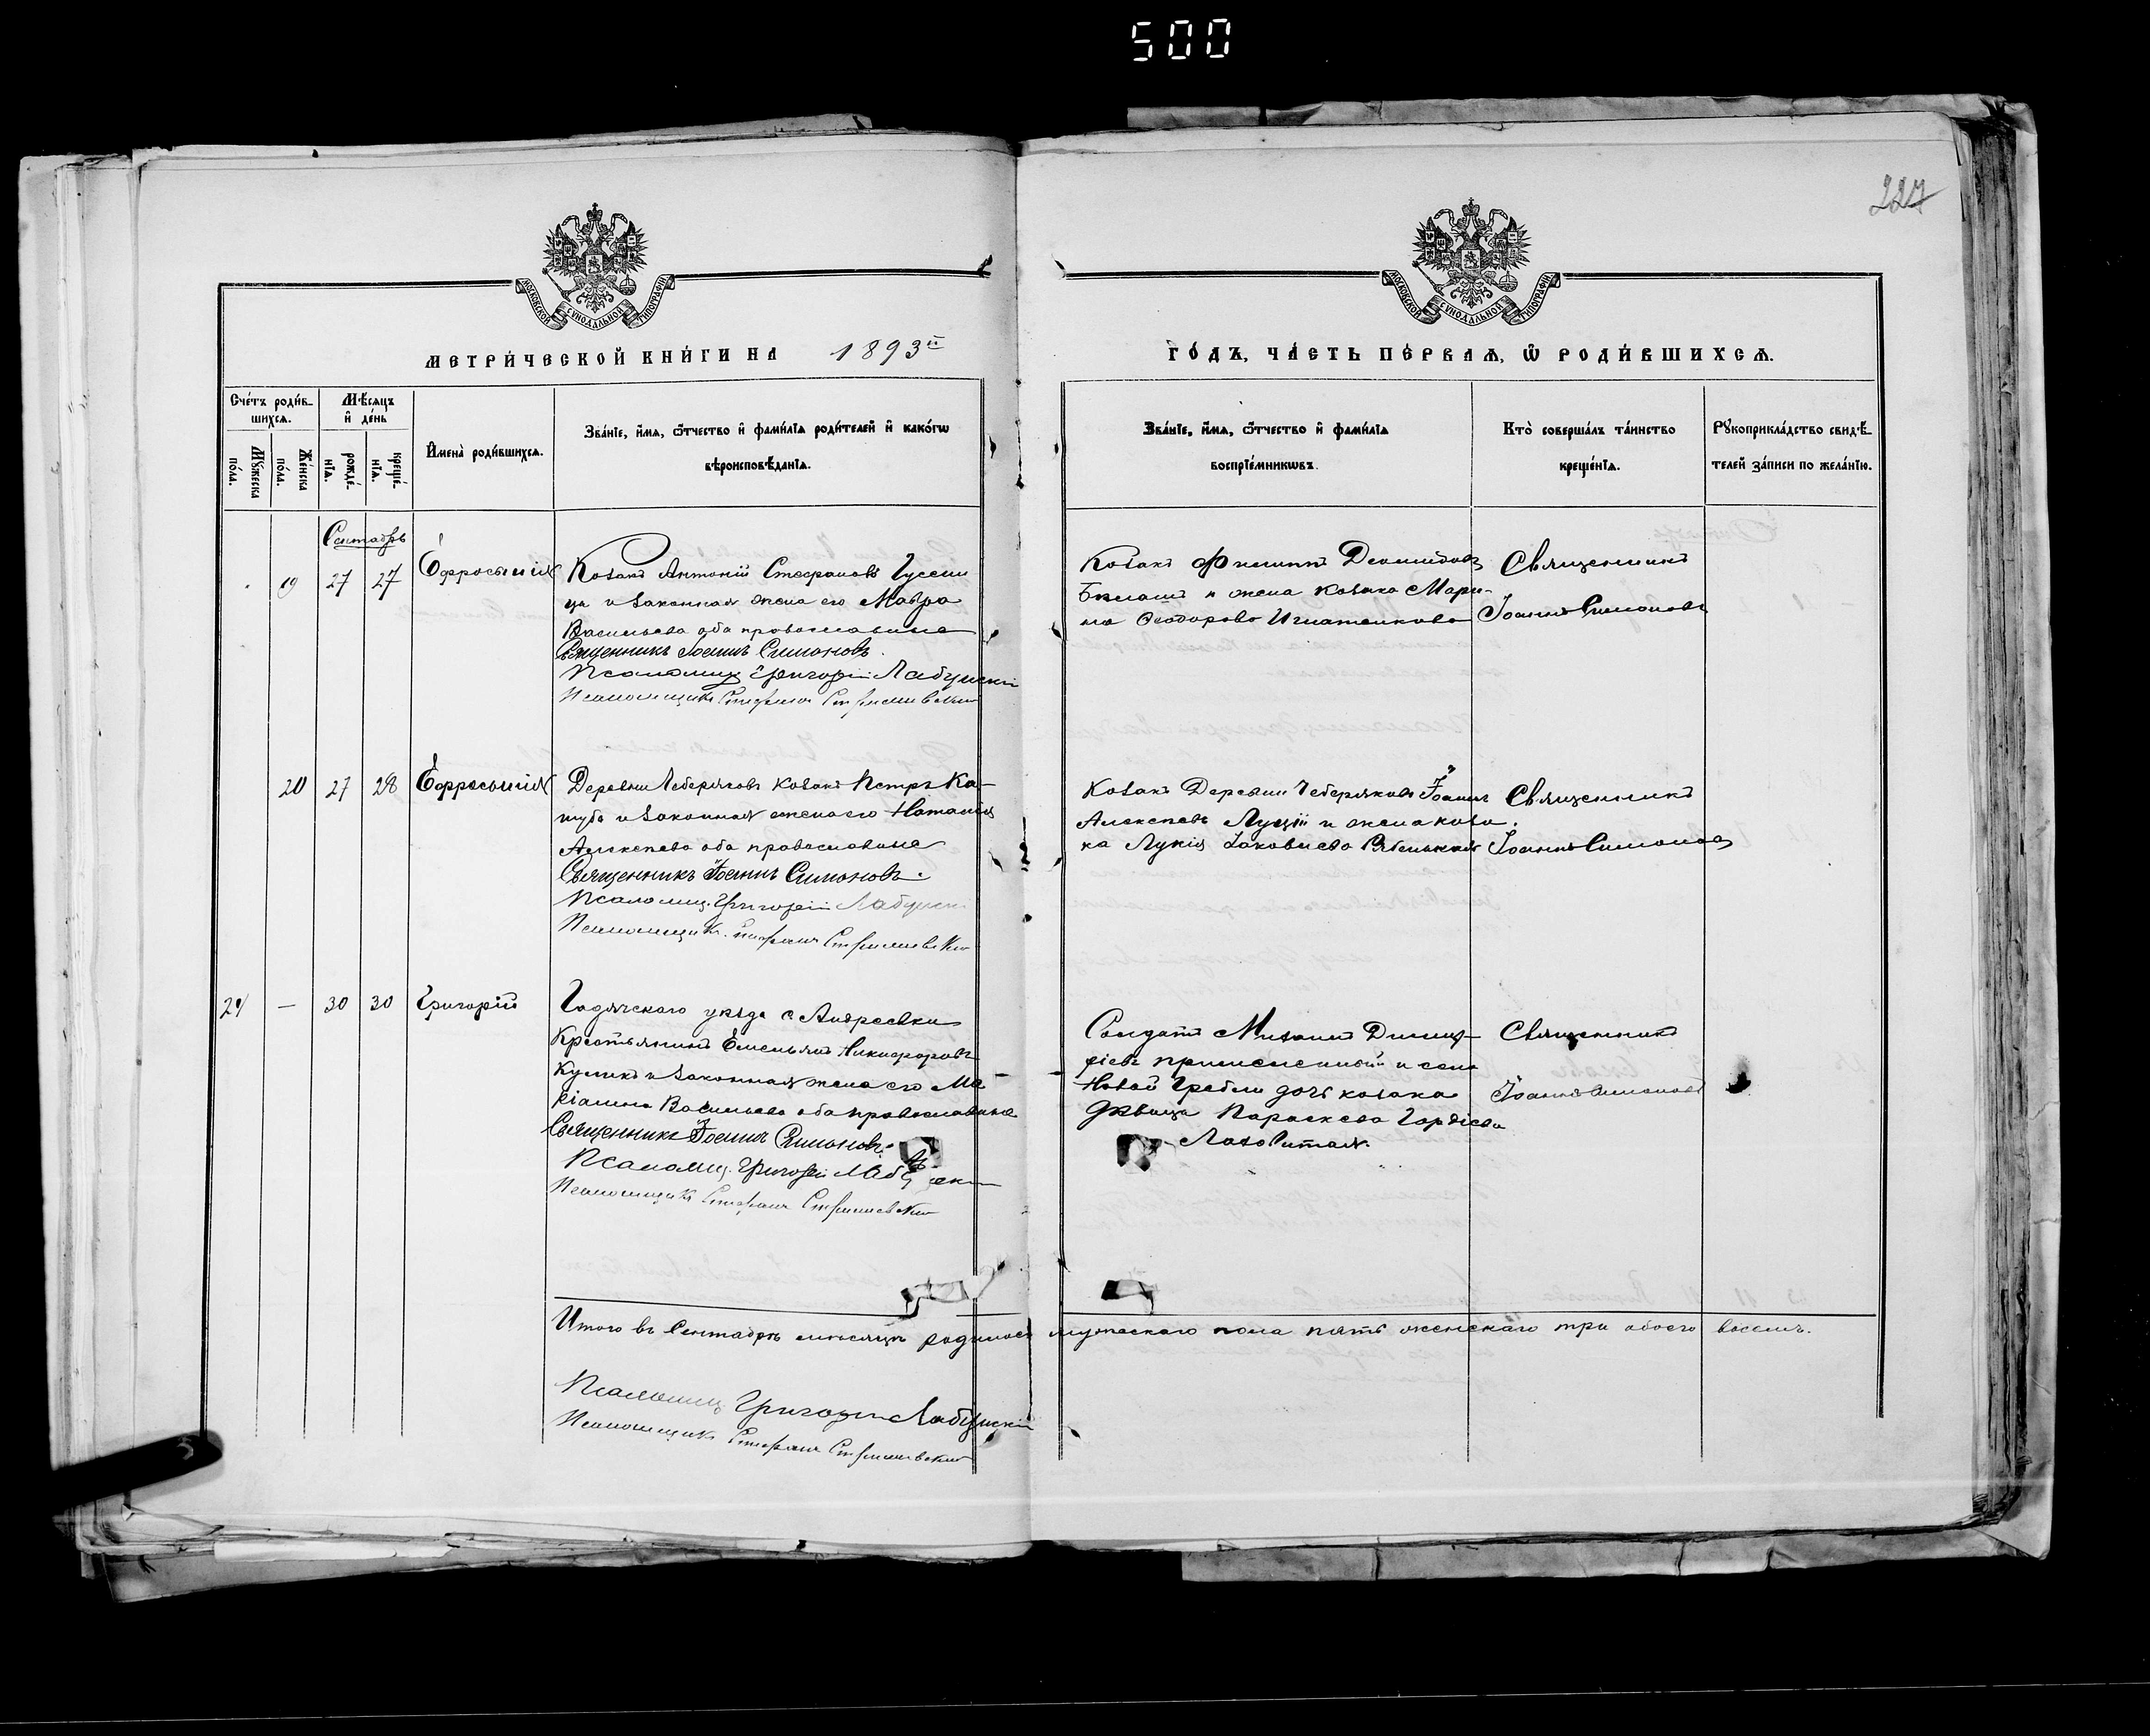 500
227
МОСКОВСКОЙ СѴНОДАЛЬНОЙ ТИПОГРАФІИ
МОСКОВСКОЙ СѴНОДАЛЬНОЙ ТИПОГРАФІИ
МЕТРИ́ЧЕСКОЙ КНИ́ГИ НА 1893й
ГО́ДЪ, ЧА́СТЬ ПЕ́РВАѦ, Ѽ РОДИ́ВШИХСѦ.
Сче́тъ роди́в-
шихсѧ.
Мꙋ́жеска по́ла.
Же́нска по́ла.
Мѣ́сѧцъ
и҆ де́нь
рожде́-
нїѧ.
креще́-
нїѧ.
И҆мена̀ роди́вшихсѧ.
Зва́нїе, и҆́мѧ, ѻ҆́тчество и҆ фами́лїѧ роди́телей и҆ како́гѡ
вѣроисповѣ́данїѧ.
Зва́нїе, и҆́мѧ, ѻ҆́тчество и҆ фами́лїѧ
воспрїе́мникѡвъ.
Кто̀ соверша́лъ та́инство
креще́нїѧ.
Рꙋкоприкла́дство свидѣ́-
телей за́писи по жела́нїю.
Сентябрь
19 27 27 Ефросинія
Козакъ Антоній Стефановъ Гусени
ца и законная жена его Мавра
Васильева оба православные
Священникъ Іоаннъ Симоновъ.
Псаломщ. Григорій Лабунскій
Псаломщикъ Стефанъ
Козакъ Филиппъ Деомидовъ
и жена козака Мари-
на Ѳеодорова Игнатенкова
Священникъ
Іоаннъ Симоновъ
20 27 28 Ефросинія
Деревни Чеберяковъ козакъ Петръ Ка-
и законная жена его Наталія
Алексеева оба православные
Священникъ Іоаннъ Симоновъ.
Псаломщ. Григорій Лабунскі
Псаломщикъ Стефанъ
Козакъ Деревни Чеберяковъ Іоаннъ
Алексеевъ и жена коза-
ка Лукія Іаковлева
Священникъ
Іоаннъ Симоновъ
24 — 30 30 Григорій
Гадячского уѣзда с Андреевки
Крестьянинъ Емельянъ Никифоровъ
Куликъ и законная жена его Ма-
ріамна Васильева оба православные
Священникъ Іоаннъ Симоновъ.
Псаломщ. Григорій Лабунскі
Псаломщикъ Стефанъ
Солдатъ Михаилъ Димит-
ріевъ и села
Новой Гребли дочь козака
дѣвица Параскева Гордіева
Священникъ
Іоаннъ Симоновъ
Итого въ Сентябрѣ мѣсяцѣ родилось мужескаго пола пять женскаго три обоего восемь.
Псаломщ. Григорій Лабунскій
Псаломщикъ Стефанъ